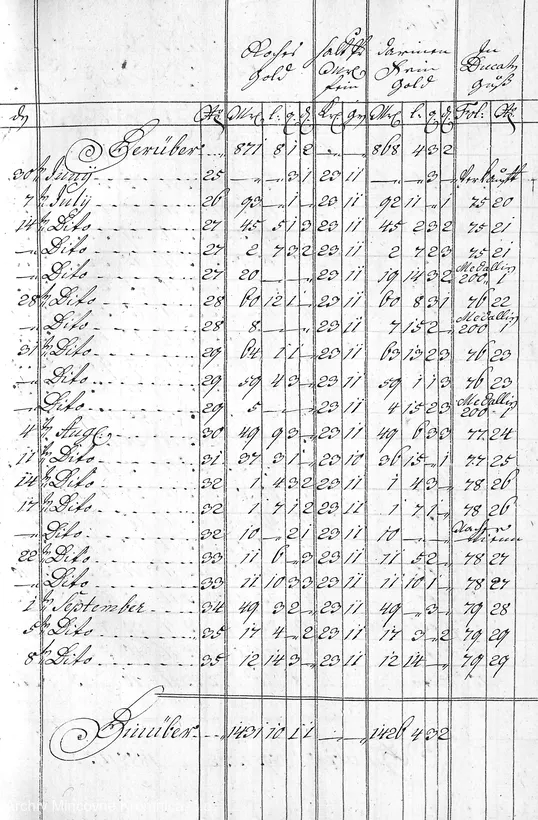 Roches halt die darinen In
Gold Mrk Fein Ducat
fein Gold Guß
dj No Mrk l. q. d. Kr. Gr. Mrk l. q. d. Fol. No
Herüber 871 8 1 2 868 4 3 2
30 Juny 25 3 1 23 11 3 Verkaufft
7 July 26 93 1 23 11 92 11 1 75 20
14 Dito 27 45 5 1 3 23 11 45 2 3 2 75 21
Dito 27 2 7 3 2 23 11 2 7 2 3 75 21
Dito 27 20 23 11 19 14 3 2 Medallin 200
28 Dito 28 60 12 1 23 11 60 8 3 1 76 22
Dito 28 8 23 11 7 15 2 Medallin 200 1
31 Dito 29 64 1 1 23 11 63 13 2 3 76 23
Dito 29 59 4 3 23 11 59 1 1 3 76 23
Dito 29 5 23 11 4 15 2 3 Medallin 200 1
4 Aug 30 49 9 3 23 11 49 6 3 3 77 24
11 Dito 31 37 3 1 23 10 36 15 1 77 25
14 Dito 32 1 4 3 2 23 11 1 4 3 78 26
17 Dito 32 1 7 1 2 23 11 1 7 1 78 26
Dito 32 10 2 1 23 11 10 Nacher Wienn
22 Dito 33 11 6 3 23 11 11 5 2 78 27
Dito 33 11 10 3 3 23 11 11 10 1 78 27
1 September 34 49 3 2 23 11 49 3 79 28
5 Dito 35 17 4 2 23 11 17 3 2 79 29
8 Dito 35 12 14 3 23 11 12 14 79 29
Hinüber 1431 10 1 1 1426 4 3 2